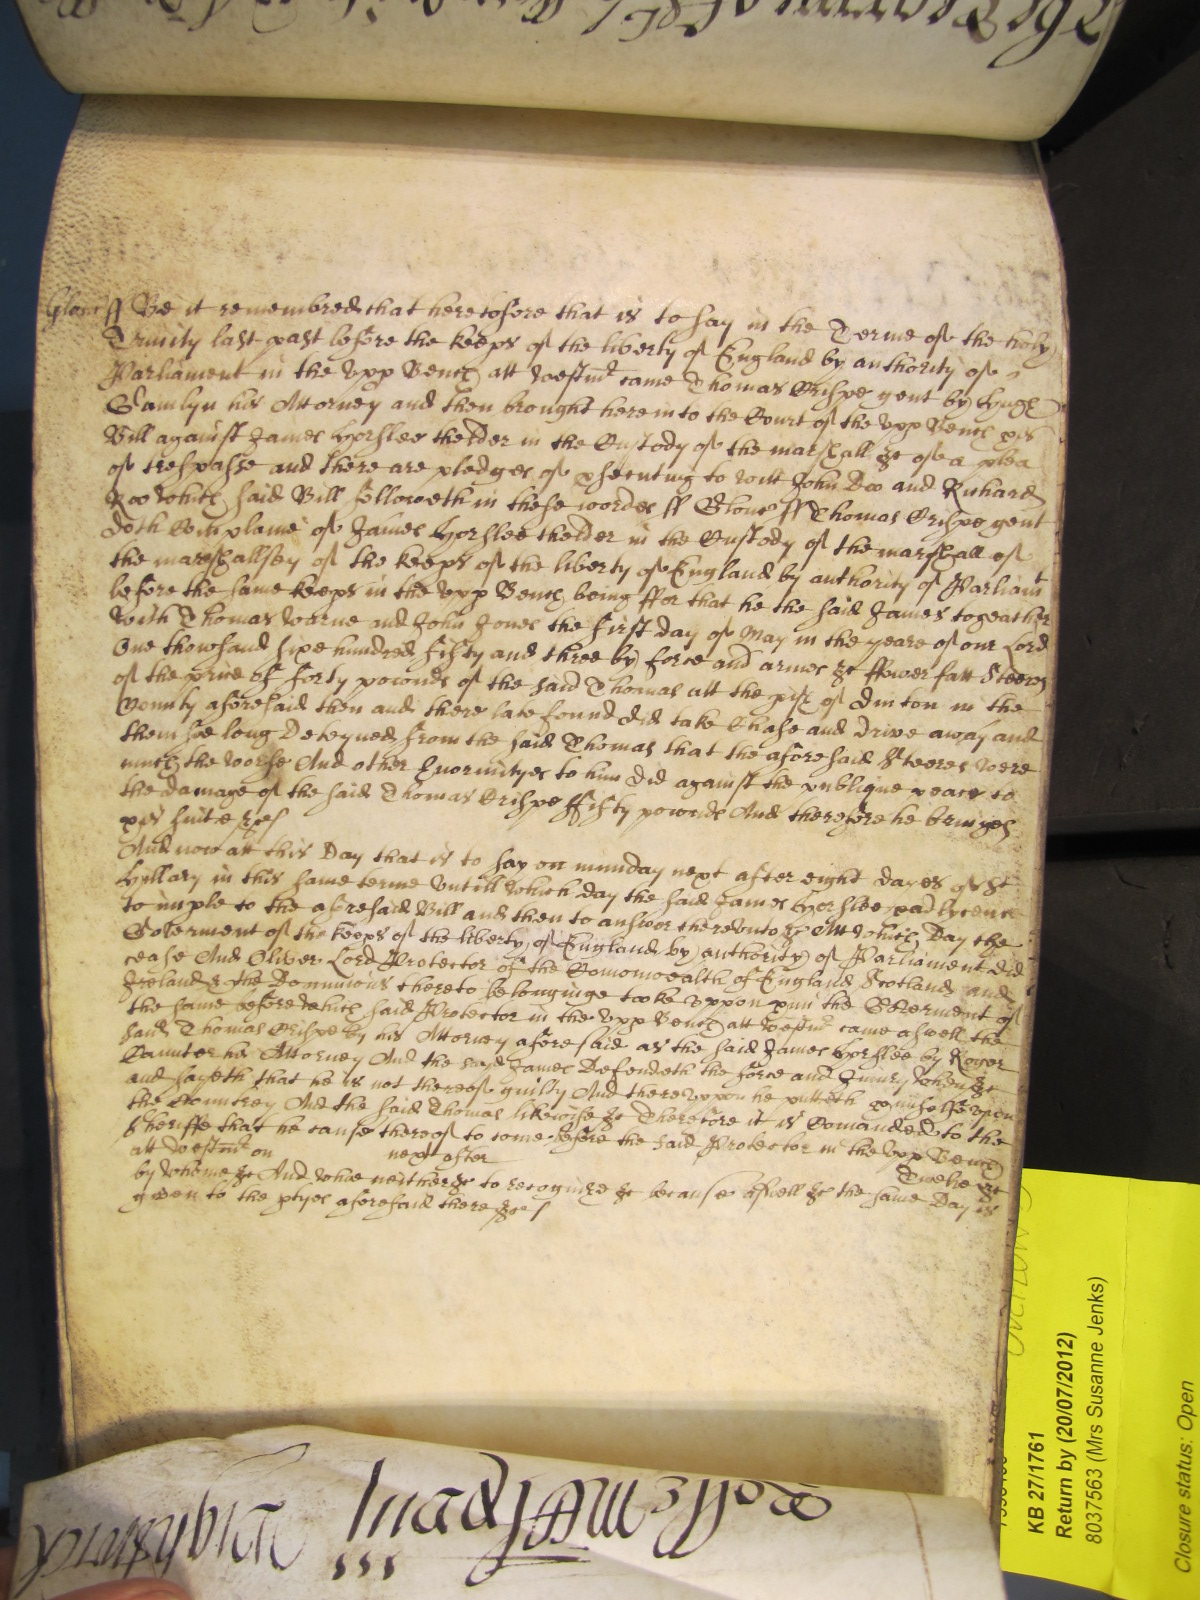 Glouc ss Be it remembred that heretofore that is to say in the Terme of the holy
Trinity last past before the keeps of the liberty of England by authority of
Parliament in the upp Bench att Westmr came Thomas Crispe gent by Hugh
Hamlyn his Attorney and then brought here into the Court of the upp Bench his
Bill against James Horslee thelder in the Custody of the marshall &c of a plea
of trespasse and there are pledges of psecuting to witt John Doo and Richard
Roo which said Bill followeth in these wordes ss Glouc ss Thomas Crispe gent
doth Complaine of James Horslee thelder in the Custody of the marshall of
the marshallsey of the keeps of the liberty of England by authority of Parliamt
before the same keeps in the upp Bench being ffor that he the said James togeather
with Thomas Worne and John Jones the first day of May in the yeare of our Lord
One thowsand sixe hundred fifty and three by force and armes &c ffower fatt Steeres
of the price of forty pownds of the said Thomas att the pish of Dinton in the
County aforesaid then and there late found did take Chase and drive away and
them soe long Deteyned from the said Thomas that the aforesaid Steeres were
much the worse And other Enormityes to him did against the publique peace to
the damage of the said Thomas Crispe ffifty pownds And therefore he bringes
his suite &c
And now att this Day that is to say on munday next after eight dayes of St
Hyllary in this same terme untill which day the said James Horslee had lycence
to imple to the aforesaid Bill and then to answer thereunto &c Att which Day the
Goverment of the keeps of the liberty of England by authority of Parliament did
cease And Oliver Lord Protector of the Comonwealth of England Scotland and
Ireland & the Dominions thereto belonginge tooke uppon him the Goverment of
the same before which said Protector in the upp Bench att Westmr came aswell the
said Thomas Crispe by his Attorney aforesaid as the said James Horslee by Roger
Caunter his Attorney And the said James Defendeth the force and Iniury when &c
and sayeth that he is not thereof guilty And thereuppon he putteth himselfe upon
the Countrey And the said Thomas likewise &c Therefore it is Comanded to the
Sheriffe that he cause thereof to come before the said Protector in the upp Bench
att Westmr on next after Twelve &c
by whome &c And whoe neither &c to recognize &c because aswell &c the same Day is
given to the ptyes aforesaid there &c
KB 27/1761
Return by (20/07/2012)
8037563 (Mrs Susanne Jenks)
Closure status: Open